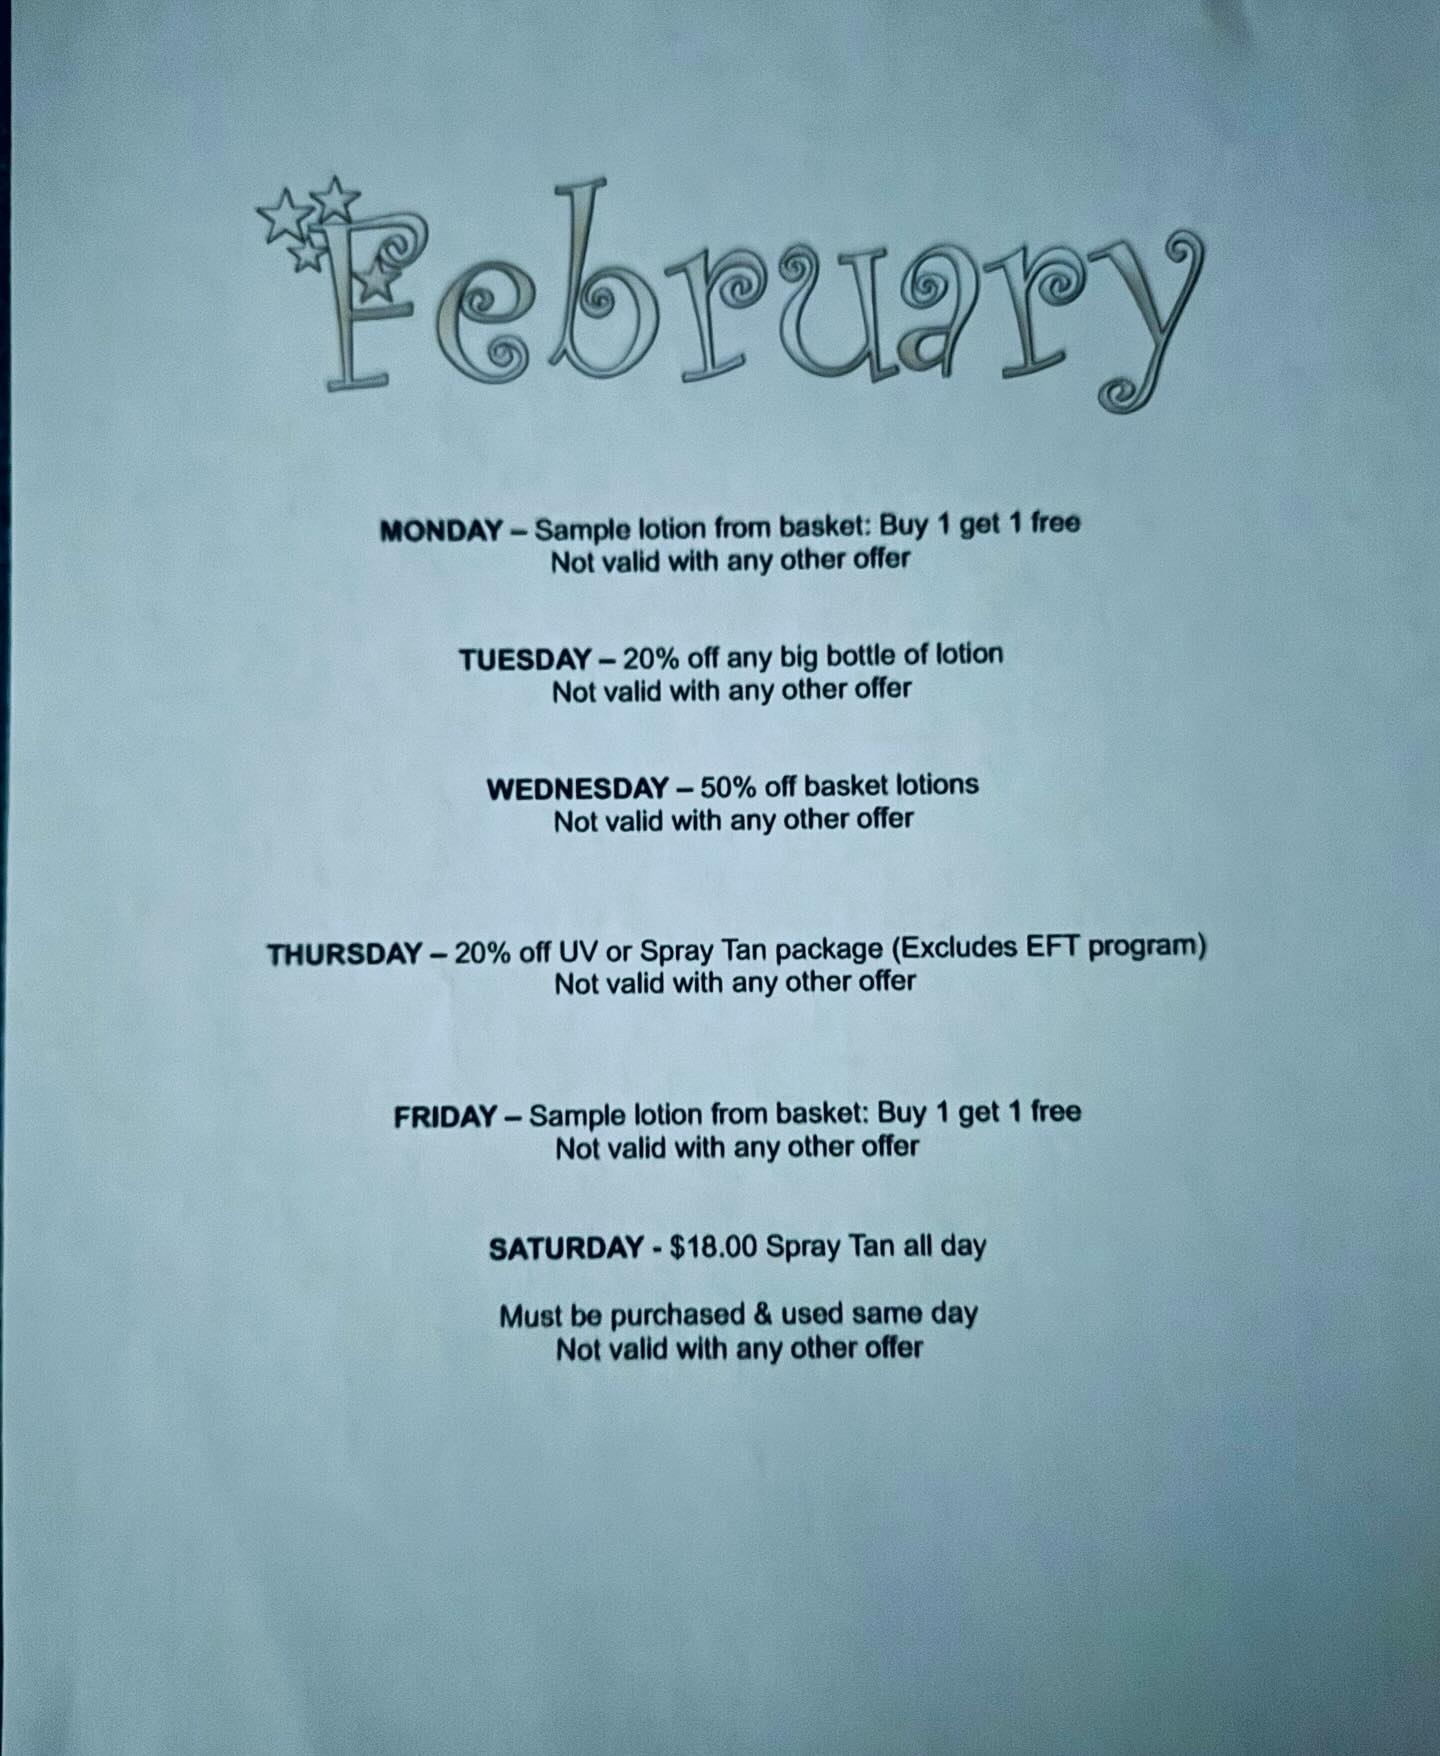 February
MONDAY – Sample lotion from basket: Buy 1 get 1 free
Not valid with any other offer
TUESDAY – 20% off any big bottle of lotion
Not valid with any other offer
WEDNESDAY – 50% off basket lotions
Not valid with any other offer
THURSDAY – 20% off UV or Spray Tan package (Excludes EFT program)
Not valid with any other offer
FRIDAY – Sample lotion from basket: Buy 1 get 1 free
Not valid with any other offer
SATURDAY - $18.00 Spray Tan all day
Must be purchased & used same day
Not valid with any other offer